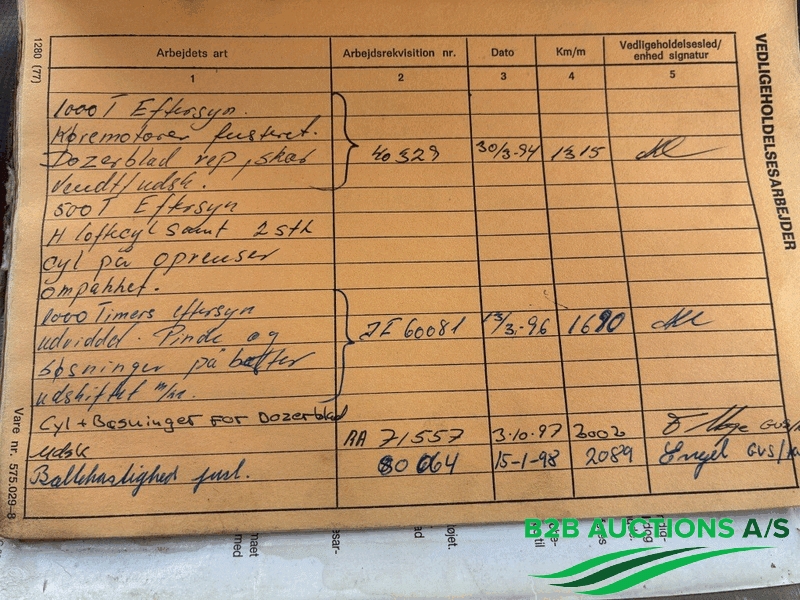 1280 (77)
Arbejdets art
Arbejdsrekvisition nr.
Dato
Km/m
Vedligeholdelsesled/
enhed signatur
1 2 3 4 5
1000 T Eftersyn.
Køremotorer justeret.
Dozerblad rep, skær 40329 30/3-94 1315
vendt/udsk.
500 T Eftersyn
H løftecyl samt 2 stk
cyl på oprenser
ompakket.
1000 Timers eftersyn
udvidder. Pinde og 60081 13/3-96 1690
bøsninger på
udskiftet
Cyl + Bøsninger FOR Dozerblad
udsk RA 71557 3-10-97
80064 15-1-98 2089 Engel GVS
VEDLIGEHOLDELSESARBEJDER
Vare nr. 575.029-8
B2B AUCTIONS A/S